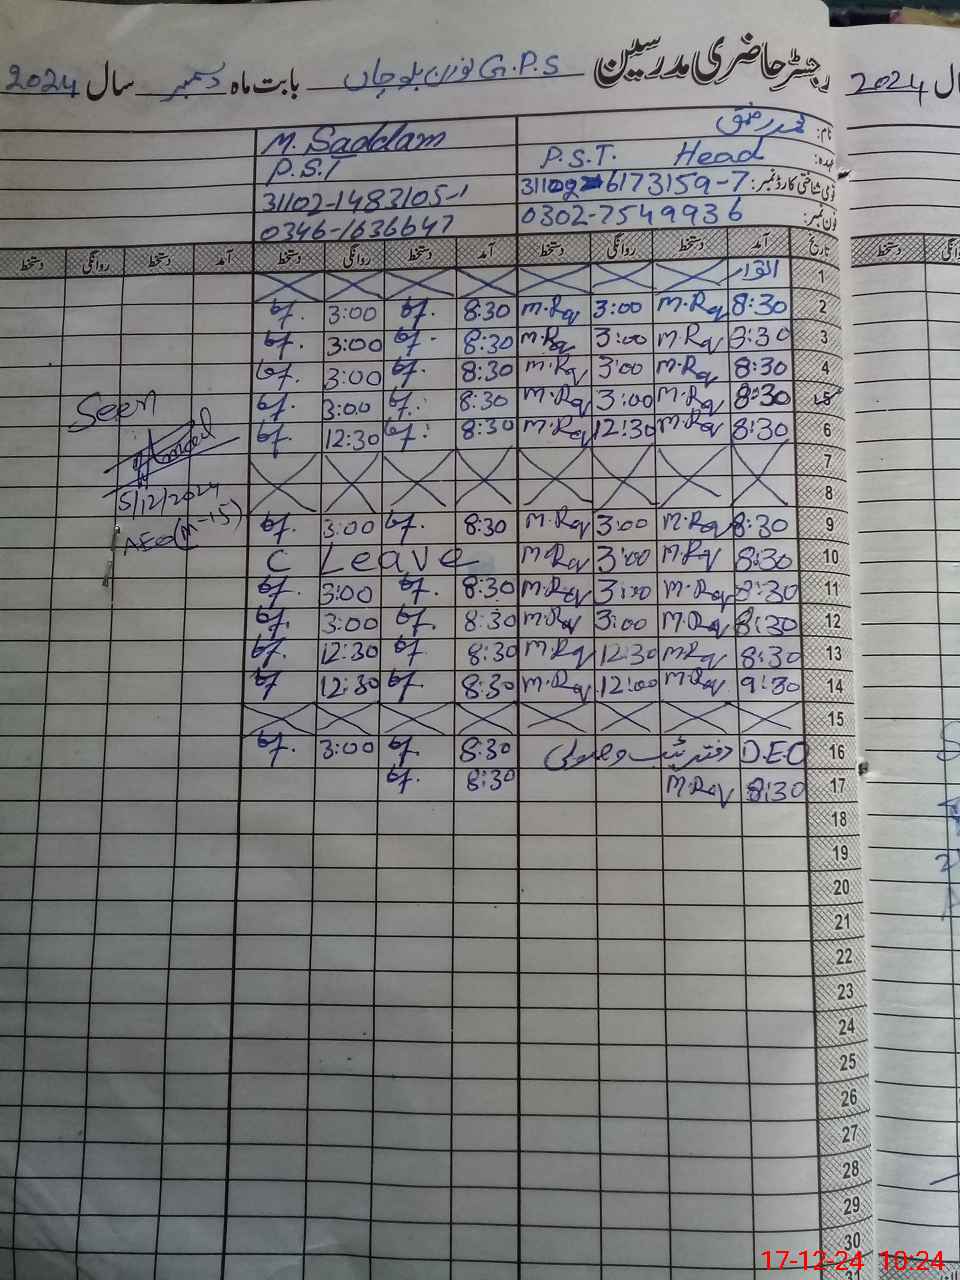 رجسٹر حاضری مدرسین G.P.S بابت ماہ دسمبر سال 2024
2024
نام:
M. Saddam
عہدہ: P.S.T. Head
P.S.T
قومی شناختی کارڈ نمبر:
31102-1483105-1
فون نمبر: 0302-7549936
0346-1636647
تاریخ آمد دستخط روانگی دستخط آمد دستخط روانگی دستخط آمد دستخط روانگی دستخط
1 اتوار
2 8:30 M.Raq 3:00 M.Raq 8:30 3:00
3 8:30 M.Raq 3:00 M.Raq 8:30 3:00
4 8:30 M.Raq 3:00 M.Raq 8:30 3:00
5 8:30 M.Raq 3:00 M.Raq 8:30 3:00
6 8:30 M.Raq 12:30 M.Raq 8:30 12:30
7
8
9 8:30 M.Raq 3:00 M.Raq 8:30 3:00
10 8:30 M.Raq 3:00 M.Raq C Leave
11 8:30 M.Raq 3:00 M.Raq 8:30 3:00
12 8:30 M.Raq 3:00 M.Raq 8:30 3:00
13 8:30 M.Raq 12:30 M.Raq 8:30 12:30
14 9:30 M.Raq 12:00 M.Raq 8:30 12:30
15
16 D.E.O دفتر ٹیب وصولی 8:30 3:00
17 8:30 M.Raq 8:30
18
19
20
21
22
23
24
25
26
27
28
29
30
31
Seen
5/12/2024
AEO (M-15)
17-12-24 10:24